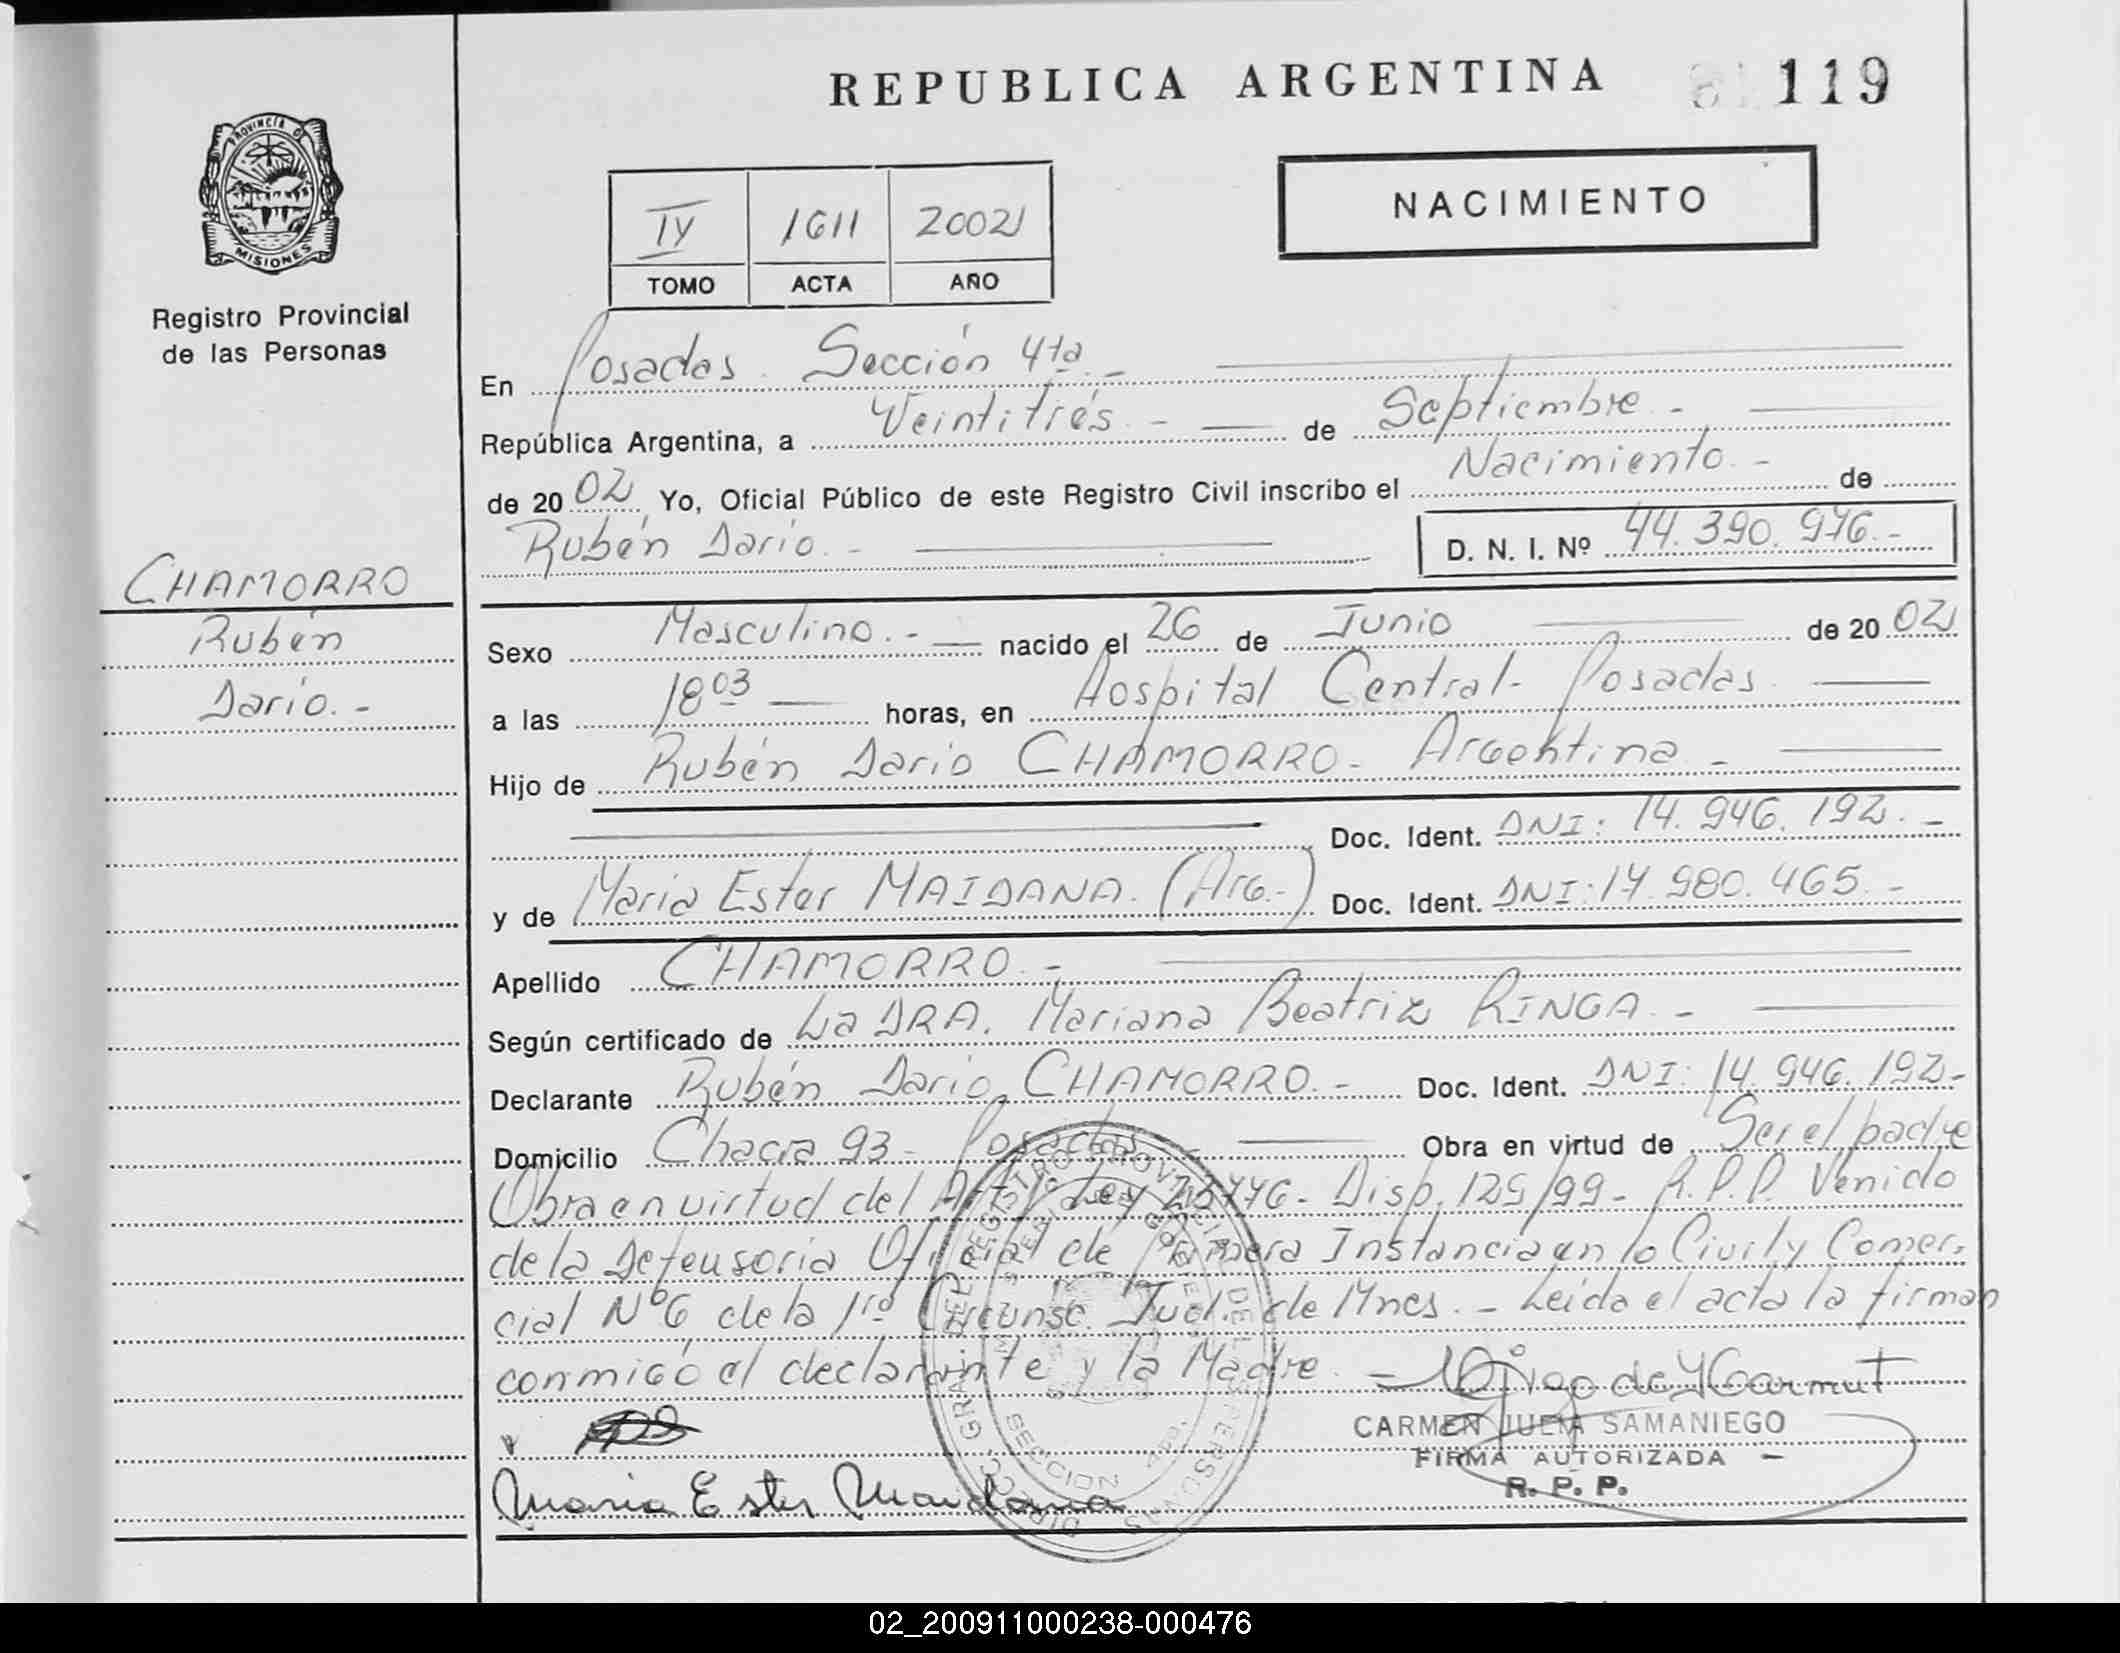 REPUBLICA ARGENTINA 119
PROVINCIA DE MISIONES
NACIMIENTO
IV 1611 2002
TOMO ACTA AÑO
Registro Provincial
de las Personas
En Posadas. Sección 4ta. -
República Argentina, a Veintitrés. - de Septiembre. -
de 2002 Yo, Oficial Público de este Registro Civil inscribo el Nacimiento. - de
Rubén Dario. - D. N. I. Nº 44.390.976.-
CHAMORRO
Rubén
Dario. -
Sexo Masculino. - nacido el 26 de Junio de 2002
a las 18 03 horas, en Hospital Central - Posadas
Hijo de Rubén Dario CHAMORRO - Argentina -
Doc. Ident. DNI: 14.946.192. -
y de Maria Ester MAIDANA. (Arg.-) Doc. Ident. DNI: 14.980.465. -
Apellido CHAMORRO. -
Según certificado de La DRA. Mariana Beatriz RINGA. -
Declarante Rubén Dario CHAMORRO. - Doc. Ident. DNI: 14.946.192-
Domicilio Chacra 93 - Posadas Obra en virtud de Ser el padre
Obra en virtud del Ley - Disp. 125/99 - R.P.P. Venido
de la Defensoria Oficial de Primera Instancia en lo Civil y Comer-
cial Nº 6 de la 1ra Circunsc. Jud. de Mnes. - Leida el acta la firman
conmigo el declarante y la Madre. -
CARMEN JULIA SAMANIEGO
FIRMA AUTORIZADA -
R. P. P.
Maria Ester Maidana
02_200911000238-000476